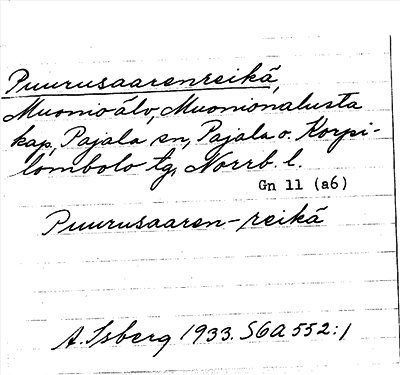 Puurusaarenreikä,
Muonio älv, Muonionalusta
kap, Pajala sn, Pajala o. Korpi-
lombolo tg, Norrb. l.
Gn 11 (a6)
Puurusaaren-reikä
A. Isberg 1933. SGA 552:1